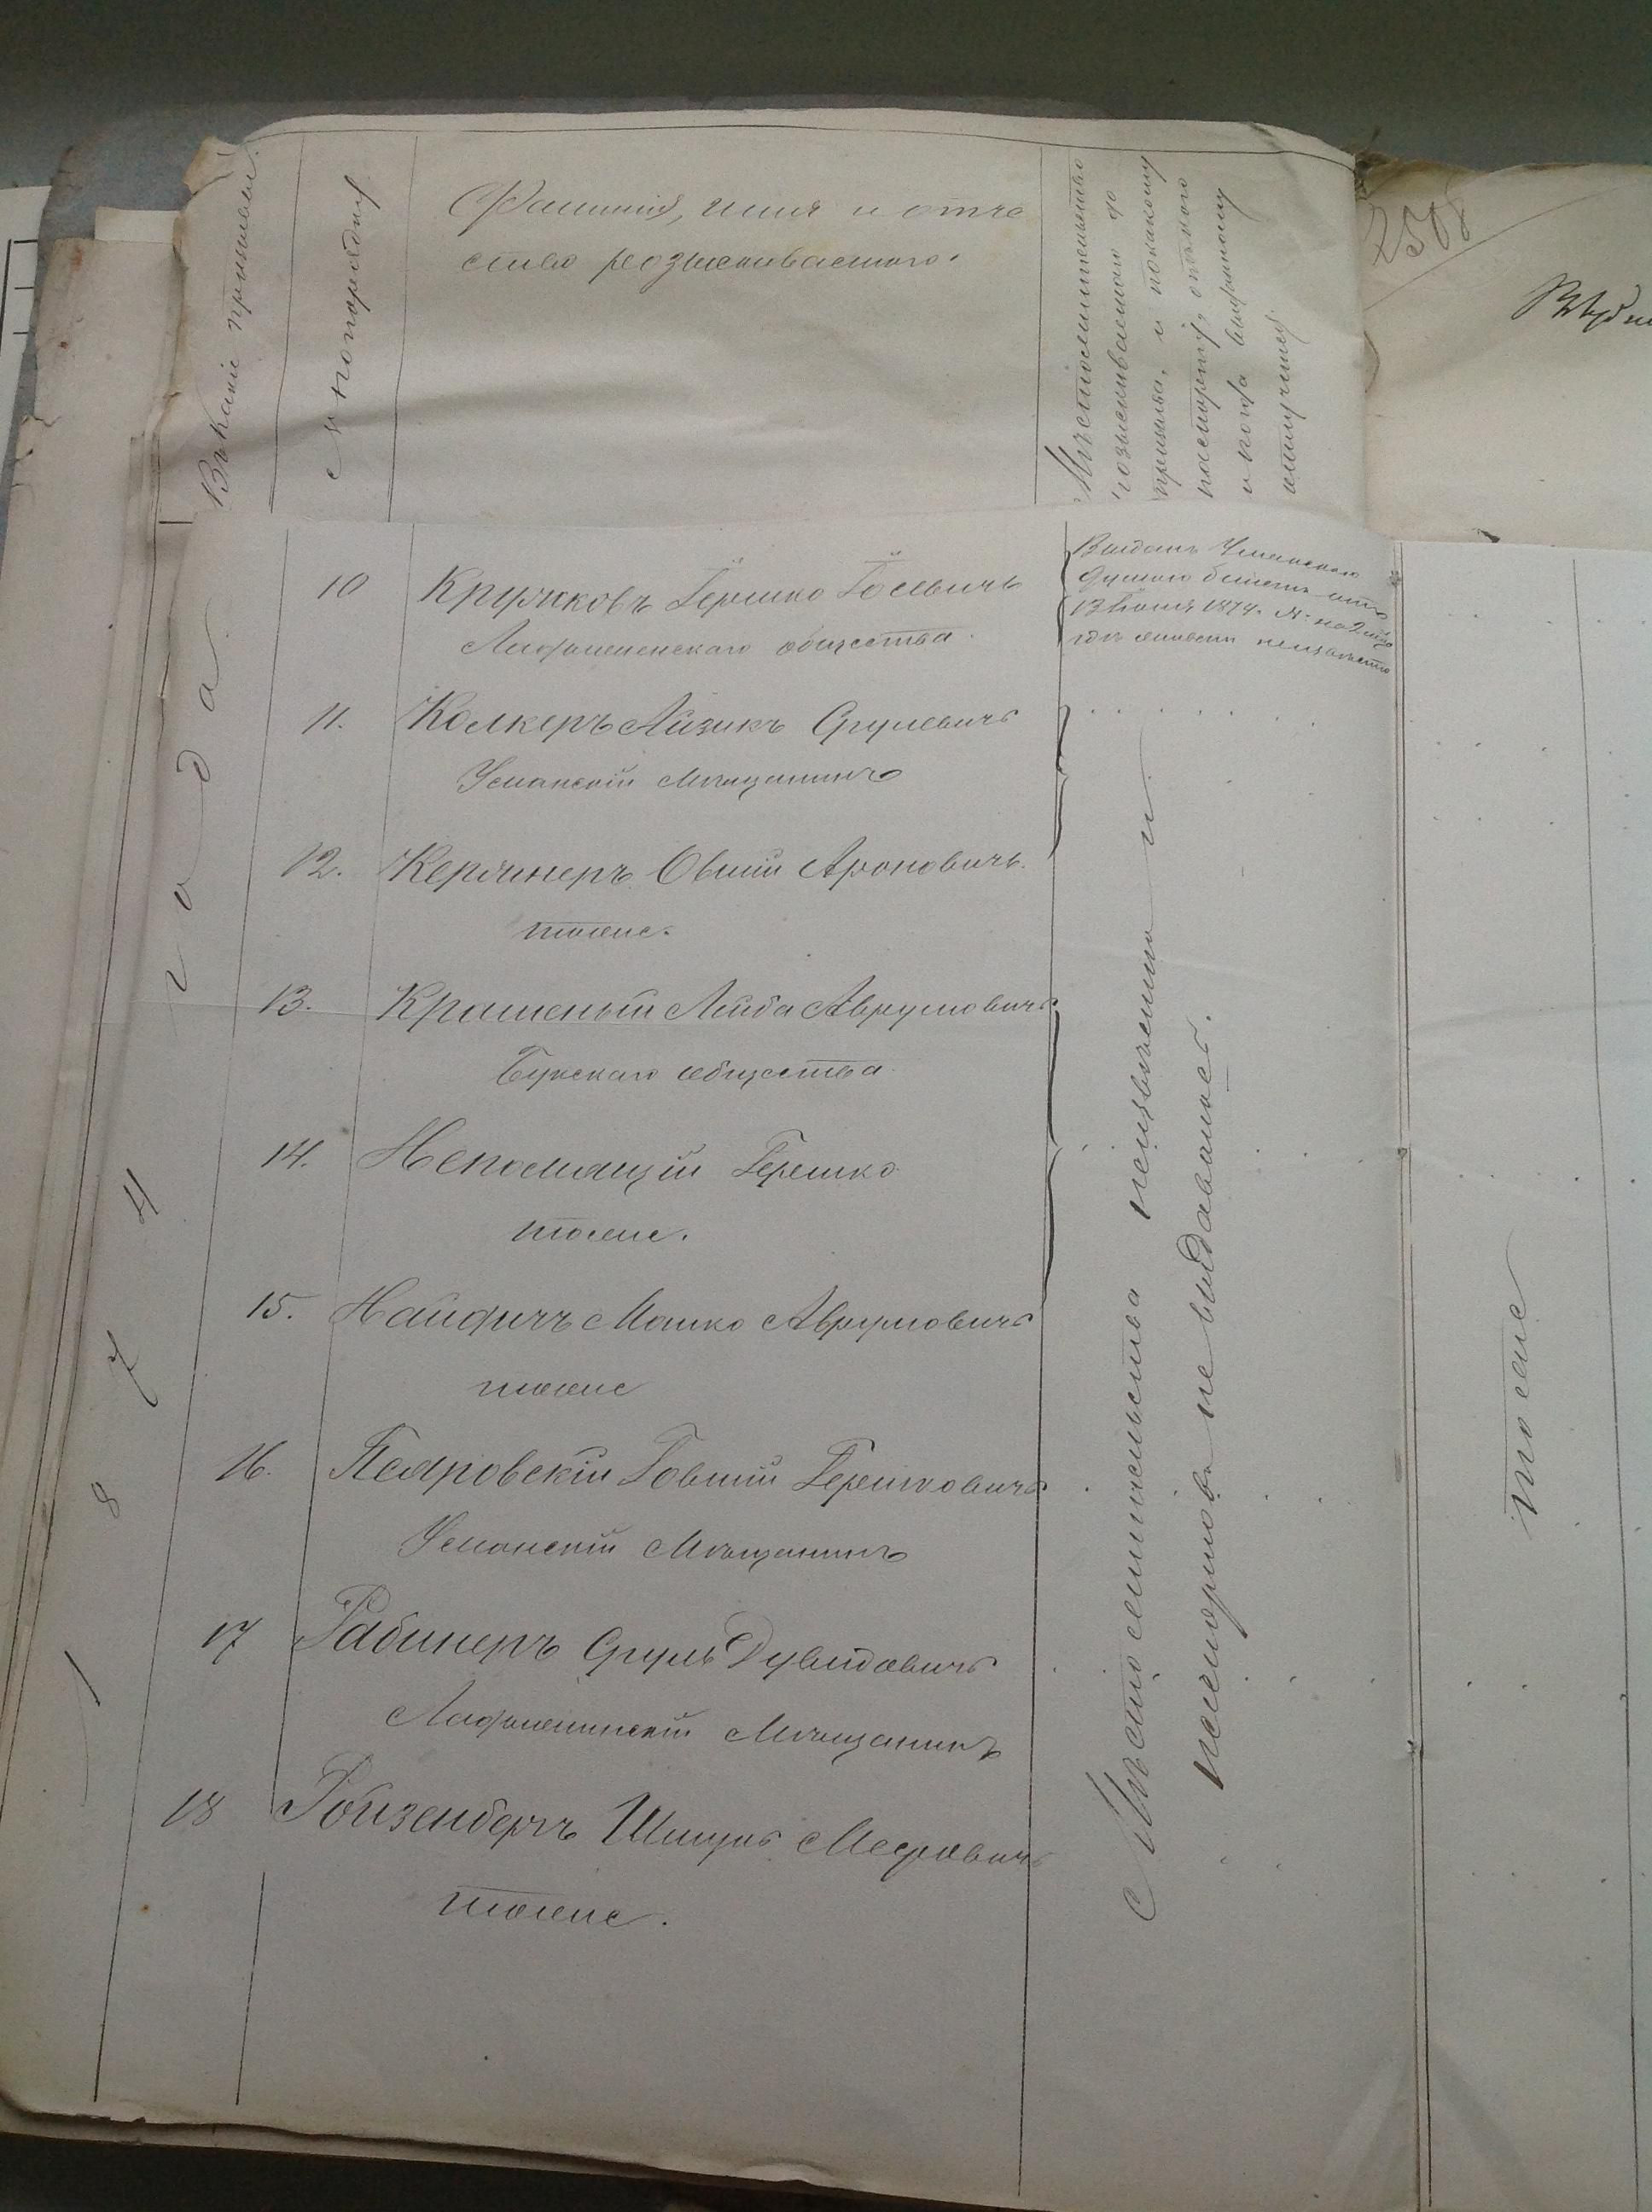 Въ какіе призывы.
№ по порядку
Фамилія, имя и отче
ство розыскиваемаго.
Мѣстожительство
розыскиваемаго до
призыва, и по какому
паспорту, отъ кого
и когда выданному
отлучился.
2508
1874 года
10 Кружковъ Гершко Іосьевичъ
Ладыженскаго общества.
Выданъ Уманскою
Думою билетъ отъ
13 Іюня 1874 г. №
гдѣ неизвѣстно
11. Колкеръ Айзикъ Срулевичъ
Уманскій Мѣщанинъ
12. Кержнеръ Овшій Ароновичъ.
тоже.
13. Крашеный Лейба Аврумовичъ
Букскаго общества
14. Непомлящій Гершко
тоже.
15. Найдичъ Мошко Аврумовичъ
тоже
16. Песяровскій Іовшій Гершковичъ
Уманскій Мѣщанинъ
17 Рабинеръ Сруль Дувидовичъ
Ладыженскій Мѣщанинъ
18 Ройзенбергъ Шицель Мееровичъ
тоже.
Мѣсто жительства неизвѣстно и
паспортовъ не выдавалось.
тоже